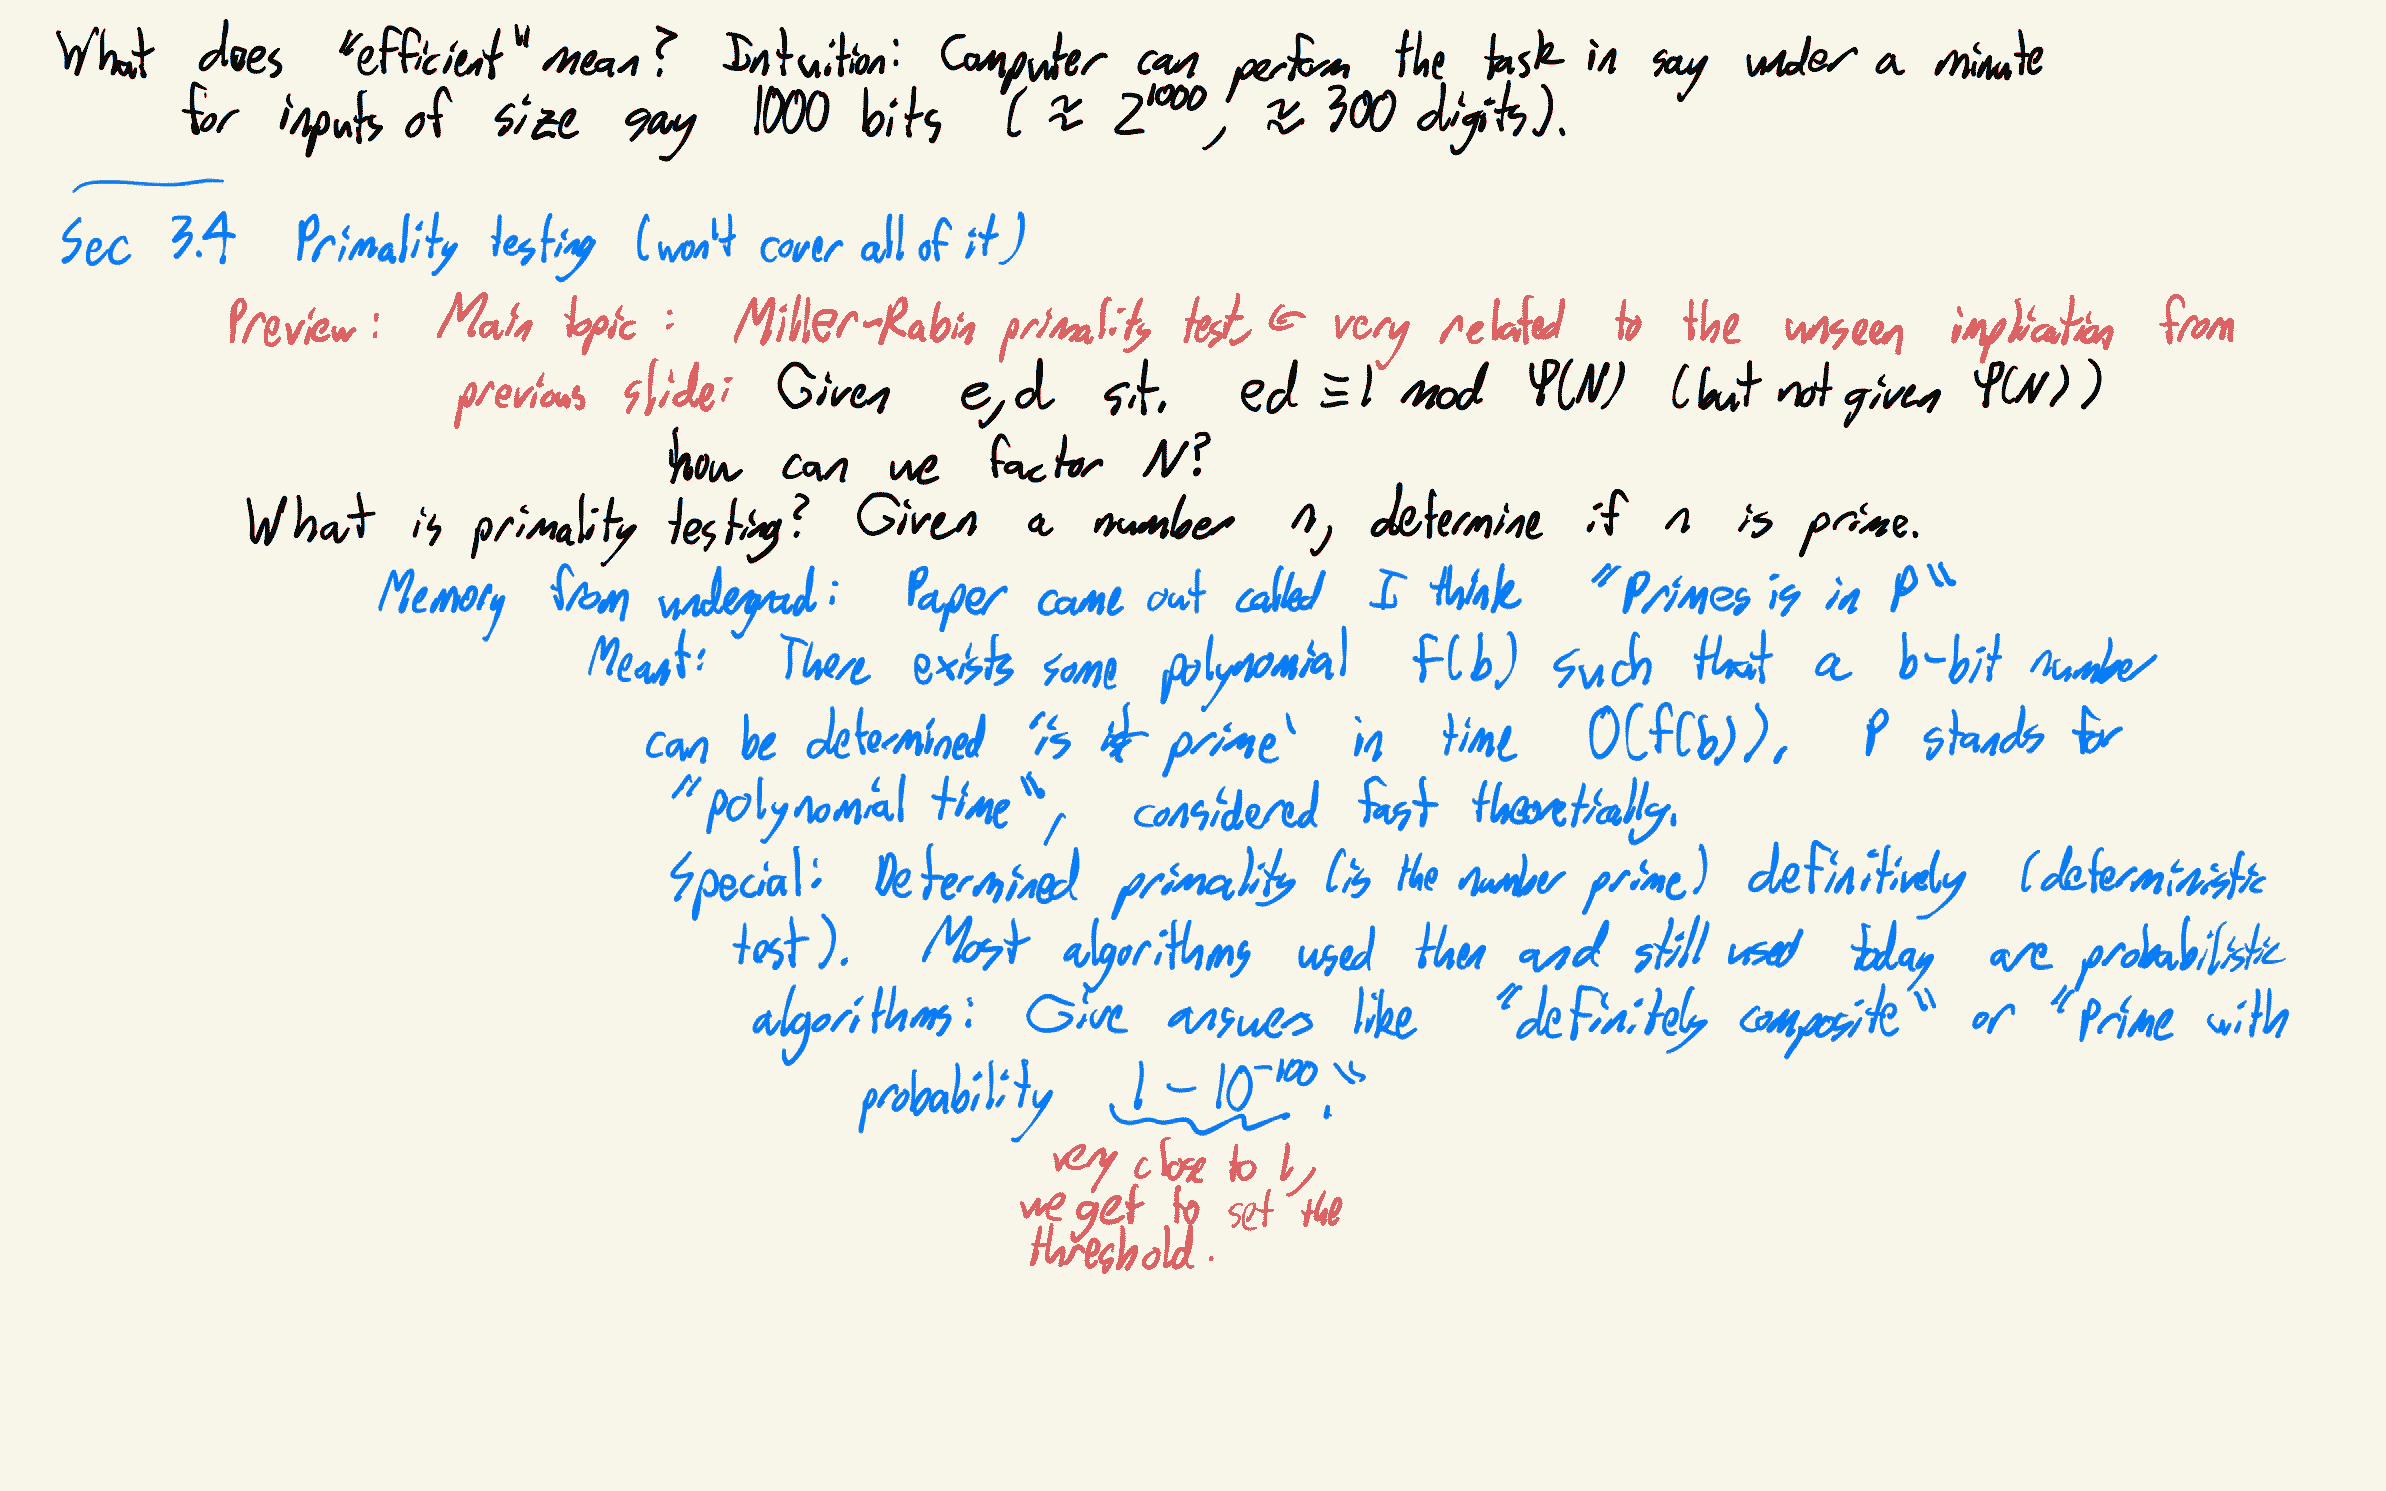 What does "efficient" mean? Intuition: Computer can perform the task in say under a minute
for inputs of size say 1000 bits (≈ 2^1000, ≈ 300 digits).
Sec 3.4 Primality testing (won't cover all of it)
Preview: Main topic: Miller-Rabin primality test ← very related to the unseen implication from
previous slide: Given e,d s.t. ed ≡ 1 mod φ(N) (but not given φ(N))
how can we factor N?
What is primality testing? Given a number n, determine if n is prime.
Memory from undergrad: Paper came out called I think "Primes is in P"
Meant: There exists some polynomial f(b) such that a b-bit number
can be determined 'is it prime' in time O(f(b)). P stands for
"polynomial time", considered fast theoretically.
Special: Determined primality (is the number prime) definitively (deterministic
test). Most algorithms used then and still used today are probabilistic
algorithms: Give answers like "definitely composite" or "Prime with
probability 1 - 10^-100."
very close to 1,
we get to set the
threshold.